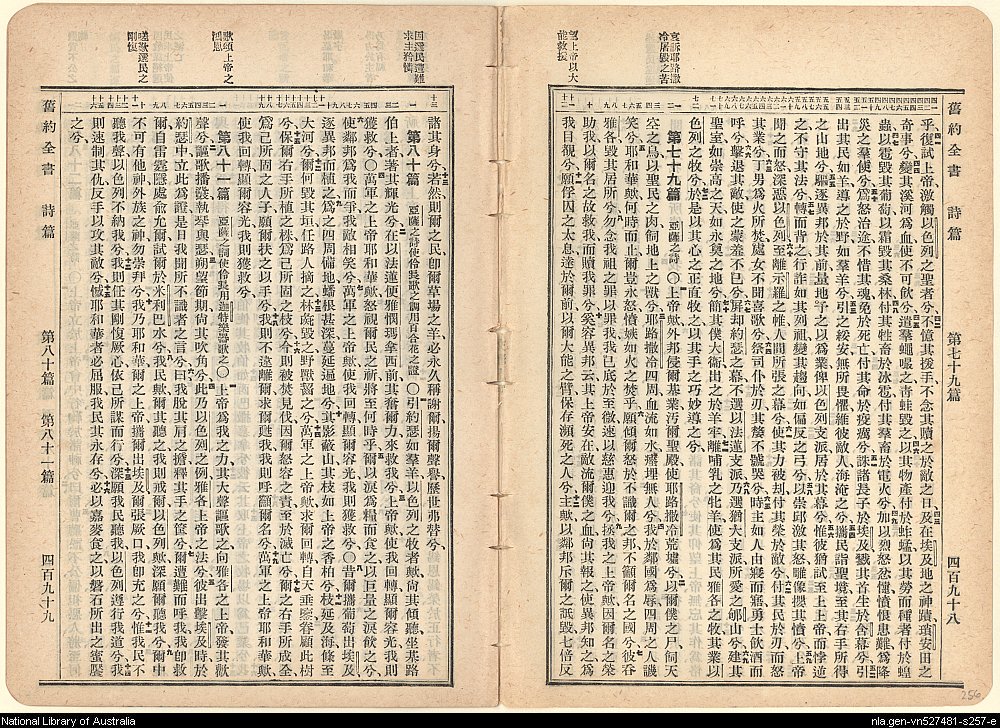 舊約全書 詩篇 第七十九篇 四百九十八
哀訴耶路撒
冷居毀之苦
望上帝以大
能救援
乎復試上帝激觸以色列之聖者兮不憶其援手不念其贖之於敵之日及在埃及地之神蹟瑣安田之
奇事兮變其溪河爲血使不可飲兮遣羣蠅嘬之青蛙毀之以其物產付於蚱蜢以其勞而種者付於蝗
蟲以雹毀其葡萄以霜毀其桑林付其牲畜於冰雹付其羣畜於電火兮加以烈怒忿懥憤恨患難爲降
災之羣使兮爲怒治途不惜其魂免於死亡付其命於疫癘兮誅諸長子於埃及戮其首生於含幕兮引
出其民如羊導之於野如羣羊兮引之綏安無所畏懼維彼敵人海淹之兮攜民詣聖境至其右手所得
之山地兮驅逐異邦於其前量地予之以爲業俾以色列支派居於其幕兮惟彼猶試至上上帝而悖逆
之不守其法兮轉而背之行詐如其列祖變其趨向如偏反之弓兮以崇邱激其怒雕像攖其憤兮上帝
聞之而怒深惡以色列兮致離示羅之帷人間所張之幕兮使其力被劫付其榮於敵兮付其民於刃而怒
其業兮丁男爲火所焚處女不聞喜歌兮祭司仆於刃其嫠不號哭兮時主如人由寢而寤勇士飲酒而
呼兮擊退其敵使之蒙羞不已兮屏却約瑟之幕不選以法蓮支派乃選猶大支派所愛之郇山兮建其
聖室如崇高之天如永奠之地兮簡其僕大衛出之於羊牢離哺乳之牝羊使爲其民雅各之牧其業以
色列之牧兮於是以其心之正直牧之以其手之巧妙導之兮
第七十九篇 亞薩之詩○上帝歟外邦侵爾基業汚爾聖殿使耶路撒冷荒墟兮以爾僕之尸飼天
空之鳥以聖民之肉飼地上之獸兮耶路撒冷四周血流如水瘞埋無人兮我於鄰國爲辱四周之人譏
笑兮耶和華歟何時而止爾豈永怒憤嫉如火之焚乎願傾爾怒於不識爾之邦不籲爾名之國兮彼吞
雅各毀其居所兮勿念我祖之罪罪我我已底於至微速以慈惠迎我兮拯我之上帝歟緣爾名之榮
助我以爾名之故救我而贖我罪兮奚容異邦云其上帝安在敵流爾僕之血尚其報之使異邦知之爲
我目覩兮願俘囚之太息達於爾前以爾大能之臂保存瀕死之人兮主歟以鄰邦斥爾之詆毀七倍反
舊約全書 詩篇 第八十篇 第八十一篇 四百九十九
因選民遭難
求主矜憐
歌頌上帝之
鴻恩
嗟歎選民之
剛愎
諸其身兮若然則爾之民卽爾草場之羊必永久稱謝爾揚爾聲譽歷世弗替兮
第八十篇 亞薩之詩使伶長歌之調用百合花之證○引約瑟如羣羊以色列之牧者歟尚其傾聽坐基路
伯上者著其輝光兮在以法蓮便雅憫瑪拿西前尚其奮爾力來救我兮上帝歟使我回轉顯爾容光我則
獲救兮○萬軍之上帝耶和華歟怒視爾民之祈將至何時乎爾以淚爲糧而食之以巨量之淚飲之兮
使鄰邦爲我而爭我敵相笑兮萬軍之上帝歟使我回轉顯爾容光我則獲救兮○昔爾攜葡萄出埃及
逐異邦而植之爲之四周備地蟠根甚深蔓延遍地兮其影蔽山其枝如上帝之香柏兮支延及海條至
大河兮爾何毀其垣任路人摘之林豕毀之野獸齧之兮萬軍之上帝歟求爾回轉自天垂鑒眷顧此樹
兮保爾右手所植之株爲己所固之枝兮今則被焚見伐因爾怒容之責至於滅亡兮爾之右手所成全
爲己所固之人子願爾扶之以手兮我則不遠離爾求爾甦我我則呼籲爾名兮萬軍之上帝耶和華歟
使我回轉顯爾容光我則獲救兮
第八十一篇 亞薩之詞使伶長用迦特樂器歌之○上帝爲我之力其大聲謳歌之向雅各之上帝發其歡
聲兮謳歌播鼗執琴與瑟朔望節期尚其吹角兮此乃以色列之例雅各上帝之法兮彼出擊埃及時於
約瑟中立此爲證是日我聞所不識者之言兮曰我脫其肩之擔釋其手之筐兮爾遭難而呼我我卽救
爾自雷霆隱處俞允爾試爾於米利巴水兮我民歟其聽之我則戒爾以色列歟深願爾聽我兮爾中
不可有他神外族之神勿崇拜兮我乃耶和華爾之上帝攜爾出埃及爾張厥口我卽充之兮惟我民不
聽我聲以色列不納我兮我則任其剛愎厥心依己所謀而行兮深願我民聽我以色列遵行我道兮我
則速制其仇反手以攻其敵兮憾耶和華者必屈服我民其永存兮以嘉麥食之以磐石所出之蜜饜
之兮
256
National Library of Australia
nla.gen-vn527481-s257-e